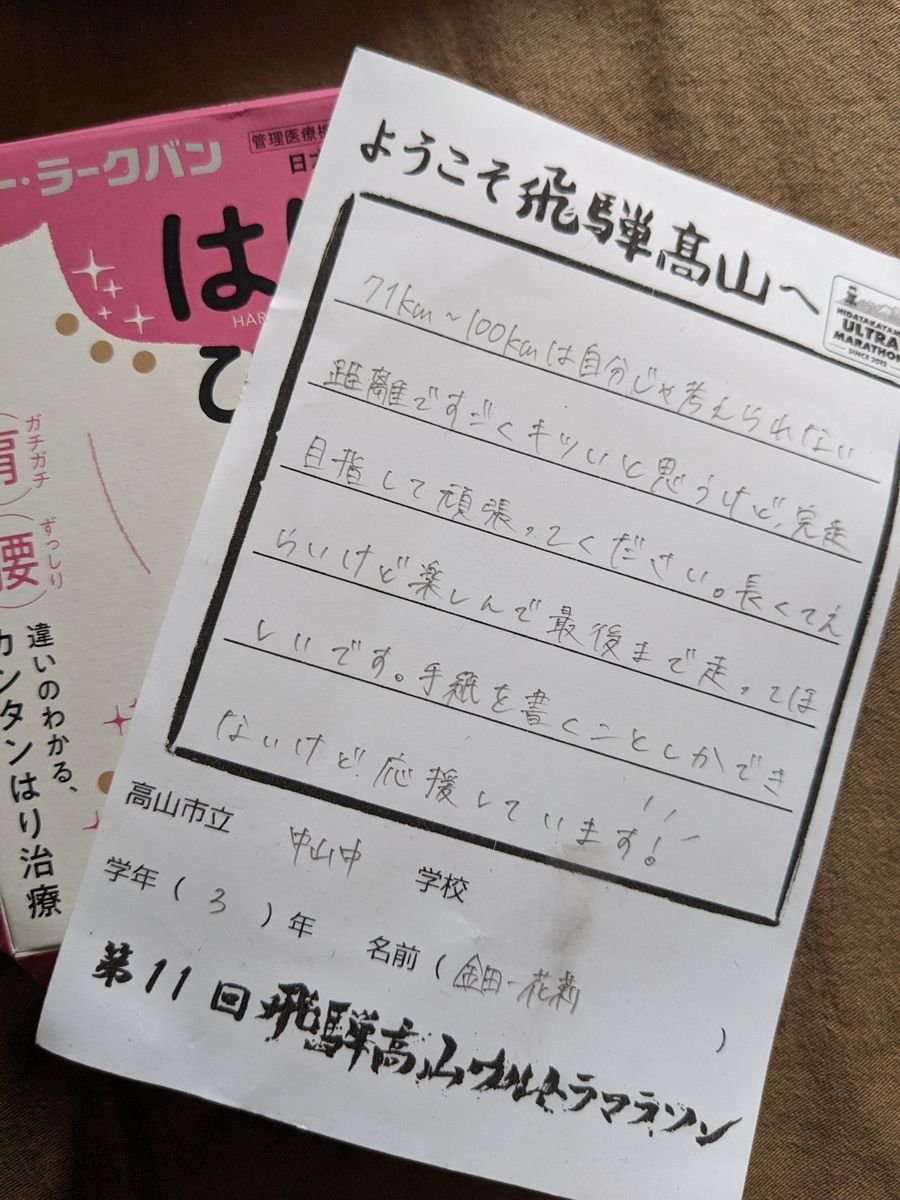 ー・ラークバン
管理医療機
は
HAR
ひ
ガチガチ
肩
ずっしり
腰
違いのわかる、
カンタンはり治療
ようこそ飛騨高山へ
HIDATAKAYAMA
ULTRA
MARATHON
SINCE 2012
71km～100kmは自分じゃ考えられない
距離ですごくキツいと思うけど、完走
目指して頑張ってください。長くてえ
らいけど楽しんで最後まで走ってほ
しいです。手紙を書くことしかでき
ないけど応援しています!!!
高山市立 中山中 学校
学年 ( 3 ) 年 名前 ( 金田一花莉 )
第11回飛騨高山ウルトラマラソン